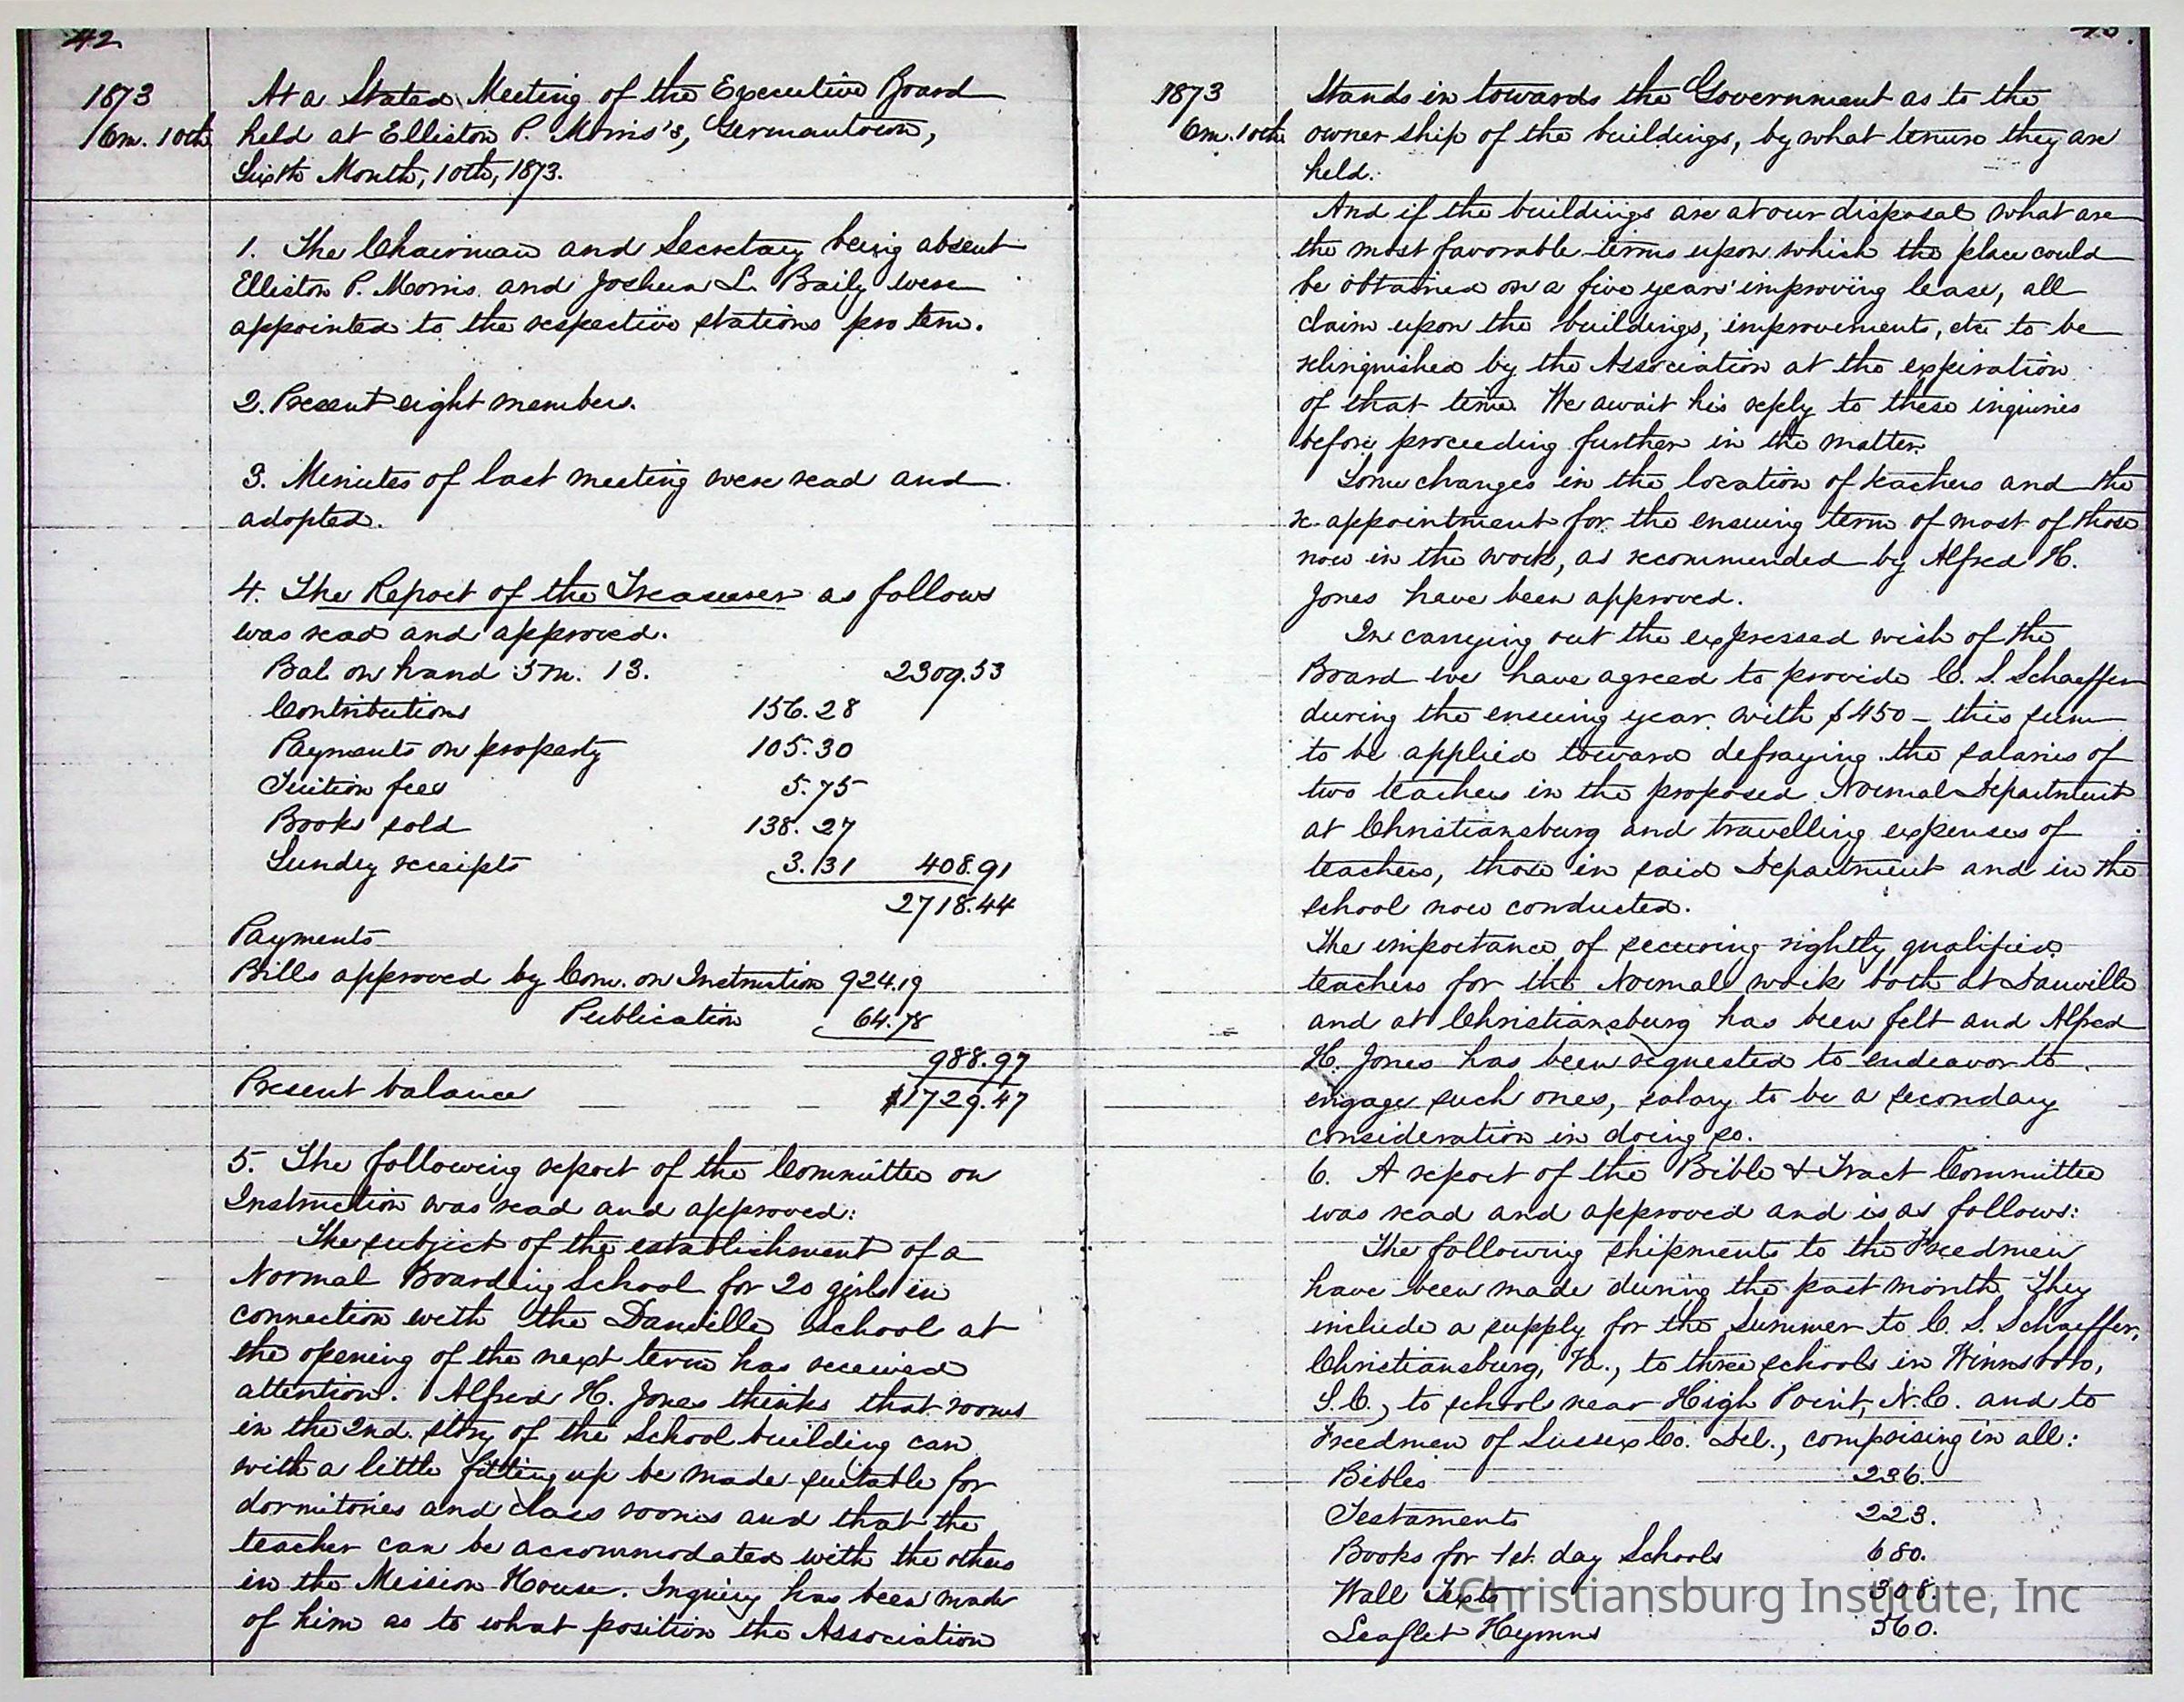 42
1873
6m. 10th
At a Stated Meeting of the Executive Board
held at Elliston P. Morris's, Germantown,
Sixth Month, 10th, 1873.
1. The Chairman and Secretary being absent
Elliston P. Morris and Joshua L. Baily were
appointed to the respective stations pro tem.
2. Present eight members.
3. Minutes of last meeting were read and
adopted.
4. The Report of the Treasurer as follows
was read and approved.
Bal on hand 5m. 13. 2309.53
Contributions 156.28
Payments on property 105.30
Tuition fees 5.75
Books sold 138.27
Sundry receipts 3.31 408.91
2718.44
Payments
Bills approved by Com. on Instruction 924.19
Publication 64.78
988.97
Present balance $1729.47
5. The following report of the Committee on
Instruction was read and approved:
The subject of the establishment of a
Normal Boarding School for 20 girls in
connection with the Danville School at
the opening of the next term has received
attention. Alfred H. Jones thinks that rooms
in the 2nd. story of the School building can
with a little fitting up be made suitable for
dormitories and class rooms and that the
teacher can be accommodated with the others
in the Mission House. Inquiry has been made
of him as to what position the Association
1873
6m. 10th
Stands in towards the Government as to the
owner ship of the buildings, by what tenure they are
held.
And if the buildings are at our disposal what are
the most favorable terms upon which the place could
be obtained on a five years' improving lease, all
claim upon the buildings, improvements, etc to be
relinquished by the Association at the expiration
of that time. We await his reply to these inquiries
before proceeding further in the matter.
Some changes in the location of teachers and the
re-appointment for the ensuing term of most of those
now in the work, as recommended by Alfred H.
Jones have been approved.
In carrying out the expressed wish of the
Board we have agreed to provide C. S. Schaeffer
during the ensuing year with $450 - this sum
to be applied toward defraying the salaries of
two teachers in the proposed Normal Department
at Christiansburg and travelling expenses of
teachers, those in said Department and in the
school now conducted.
The importance of securing rightly qualified
teachers for the Normal work both at Danville
and at Christiansburg has been felt and Alfred
H. Jones has been requested to endeavor to
engage such ones, salary to be a secondary
consideration in doing so.
6. A report of the Bible & Tract Committee
was read and approved and is as follows:
The following shipments to the Freedmen
have been made during the past month. They
include a supply for the Summer to C. S. Schaeffer,
Christiansburg, Va., to three schools in Winnsboro,
S.C., to schools near High Point, N.C. and to
Freedmen of Sussex Co. Del., comprising in all:
Bibles 236.
Testaments 223.
Books for 1st. day Schools 680.
Wall Texts 308.
Leaflet Hymns 560.
Christiansburg Institute, Inc